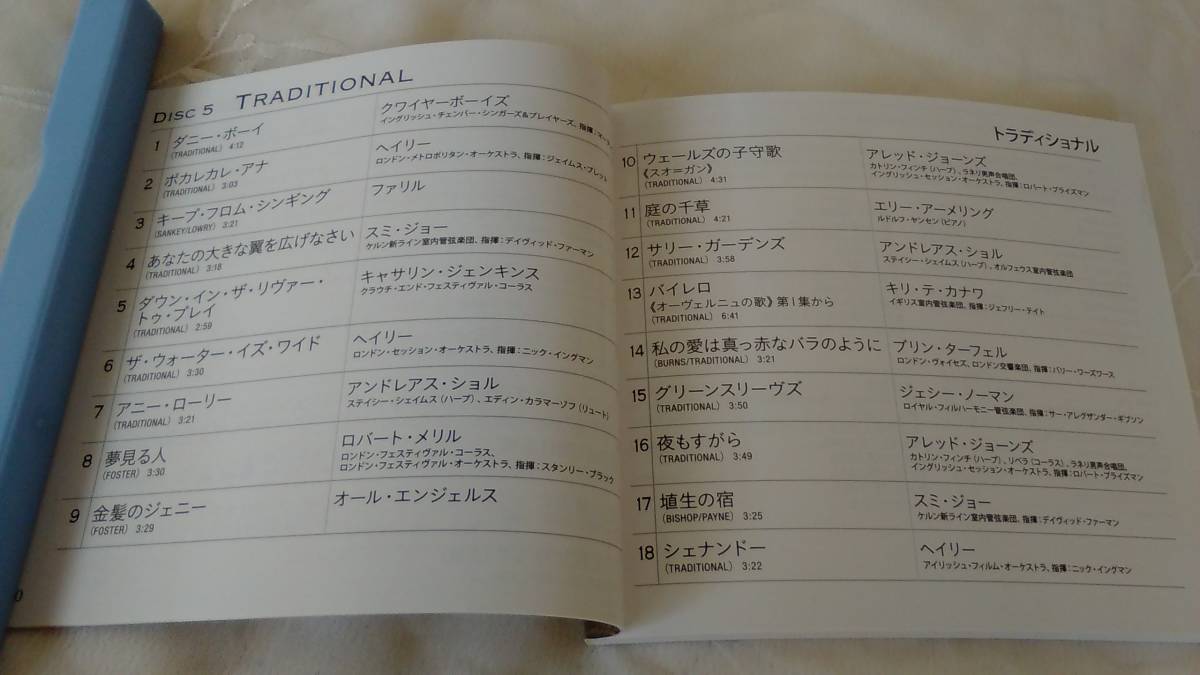 DISC 5 TRADITIONAL
1 ダニー・ボーイ
(TRADITIONAL) 4:12
クワイヤーボーイズ
イングリッシュ・チェンバー・シンガーズ&プレイヤーズ、指揮:
2 ポカレカレ・アナ
(TRADITIONAL) 3:03
ヘイリー
ロンドン・メトロポリタン・オーケストラ、指揮:ジェイムス・ブレット
3 キープ・フロム・シンギング
(SANKEY/LOWRY) 3:21
ファリル
4 あなたの大きな翼を広げなさい
(TRADITIONAL) 3:18
スミ・ジョー
ケルン新ライン室内管弦楽団、指揮:デイヴィッド・ファーマン
5 ダウン・イン・ザ・リヴァー・
トゥ・プレイ
(TRADITIONAL) 2:59
キャサリン・ジェンキンス
クラウチ・エンド・フェスティヴァル・コーラス
6 ザ・ウォーター・イズ・ワイド
(TRADITIONAL) 3:30
ヘイリー
ロンドン・セッション・オーケストラ、指揮:ニック・イングマン
7 アニー・ローリー
(TRADITIONAL) 3:21
アンドレアス・ショル
ステイシー・シェイムス(ハープ)、エディン・カラマーゾフ(リュート)
8 夢見る人
(FOSTER) 3:30
ロバート・メリル
ロンドン・フェスティヴァル・コーラス、
ロンドン・フェスティヴァル・オーケストラ、指揮:スタンリー・ブラック
9 金髪のジェニー
(FOSTER) 3:29
オール・エンジェルス
トラディショナル
10 ウェールズの子守歌
《スオ=ガン》
(TRADITIONAL) 4:31
アレッド・ジョーンズ
カトリン・フィンチ(ハープ)、ラネリ男声合唱団、
イングリッシュ・セッション・オーケストラ、指揮:ロバート・プライズマン
11 庭の千草
(TRADITIONAL) 4:21
エリー・アーメリング
ルドルフ・ヤンセン(ピアノ)
12 サリー・ガーデンズ
(TRADITIONAL) 3:58
アンドレアス・ショル
ステイシー・シェイムス(ハープ)、オルフェウス室内管弦楽団
13 バイレロ
《オーヴェルニュの歌》第1集から
(TRADITIONAL) 6:41
キリ・テ・カナワ
イギリス室内管弦楽団、指揮:ジェフリー・テイト
14 私の愛は真っ赤なバラのように
(BURNS/TRADITIONAL) 3:21
ブリン・ターフェル
ロンドン・ヴォイセズ、ロンドン交響楽団、指揮:バリー・ワーズワース
15 グリーンスリーヴズ
(TRADITIONAL) 3:50
ジェシー・ノーマン
ロイヤル・フィルハーモニー管弦楽団、指揮:サー・アレグザンダー・ギブソン
16 夜もすがら
(TRADITIONAL) 3:49
アレッド・ジョーンズ
カトリン・フィンチ(ハープ)、リベラ(コーラス)、ラネリ男声合唱団、
イングリッシュ・セッション・オーケストラ、指揮:ロバート・プライズマン
17 埴生の宿
(BISHOP/PAYNE) 3:25
スミ・ジョー
ケルン新ライン室内管弦楽団、指揮:デイヴィッド・ファーマン
18 シェナンドー
(TRADITIONAL) 3:22
ヘイリー
アイリッシュ・フィルム・オーケストラ、指揮:ニック・イングマン